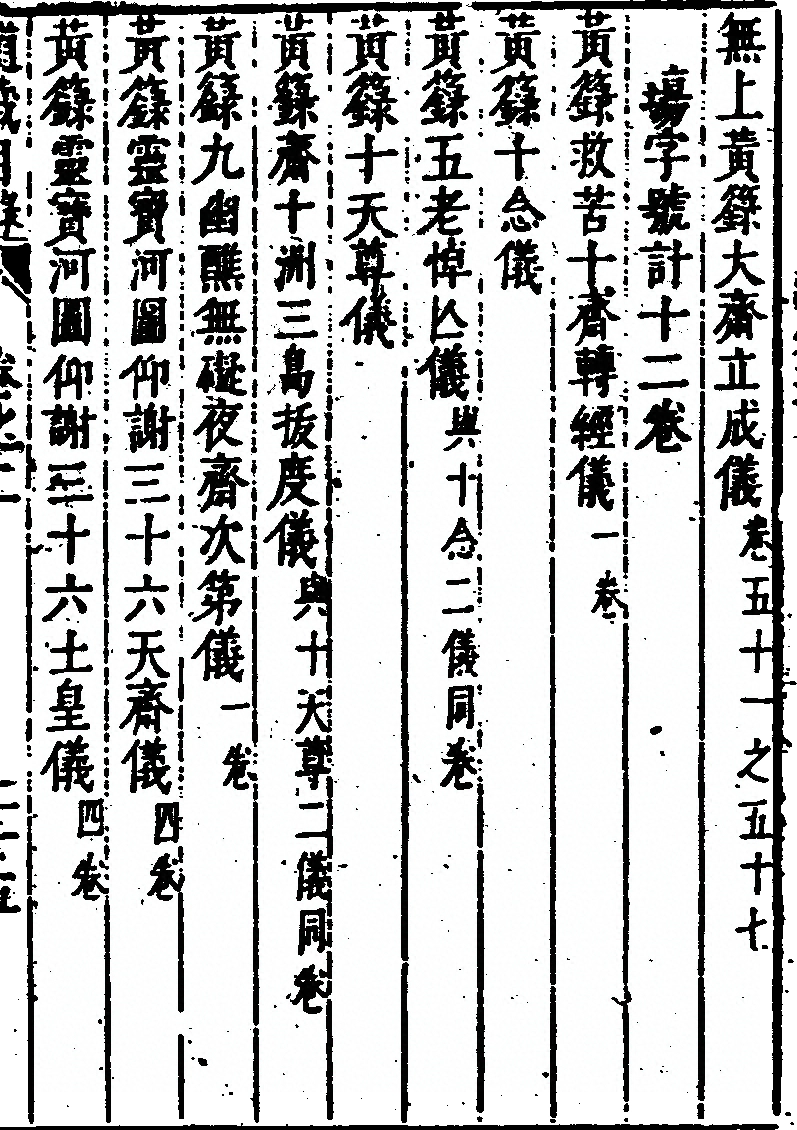 無上黃籙大齋立成儀卷五十一之五十七
場字號計十二卷
黃籙救苦十齋轉經儀一卷
黃籙十念儀
黃籙五老悼亾儀與十念二儀同卷
黃籙十天尊儀
黃籙齋十洲三島拔度儀與十天尊二儀同卷
黃籙九幽醮無礙夜齋次第儀一卷
黃籙靈寶河圖仰謝三十六天齋儀四卷
黃籙靈寶河圖仰謝三十六土皇儀四卷